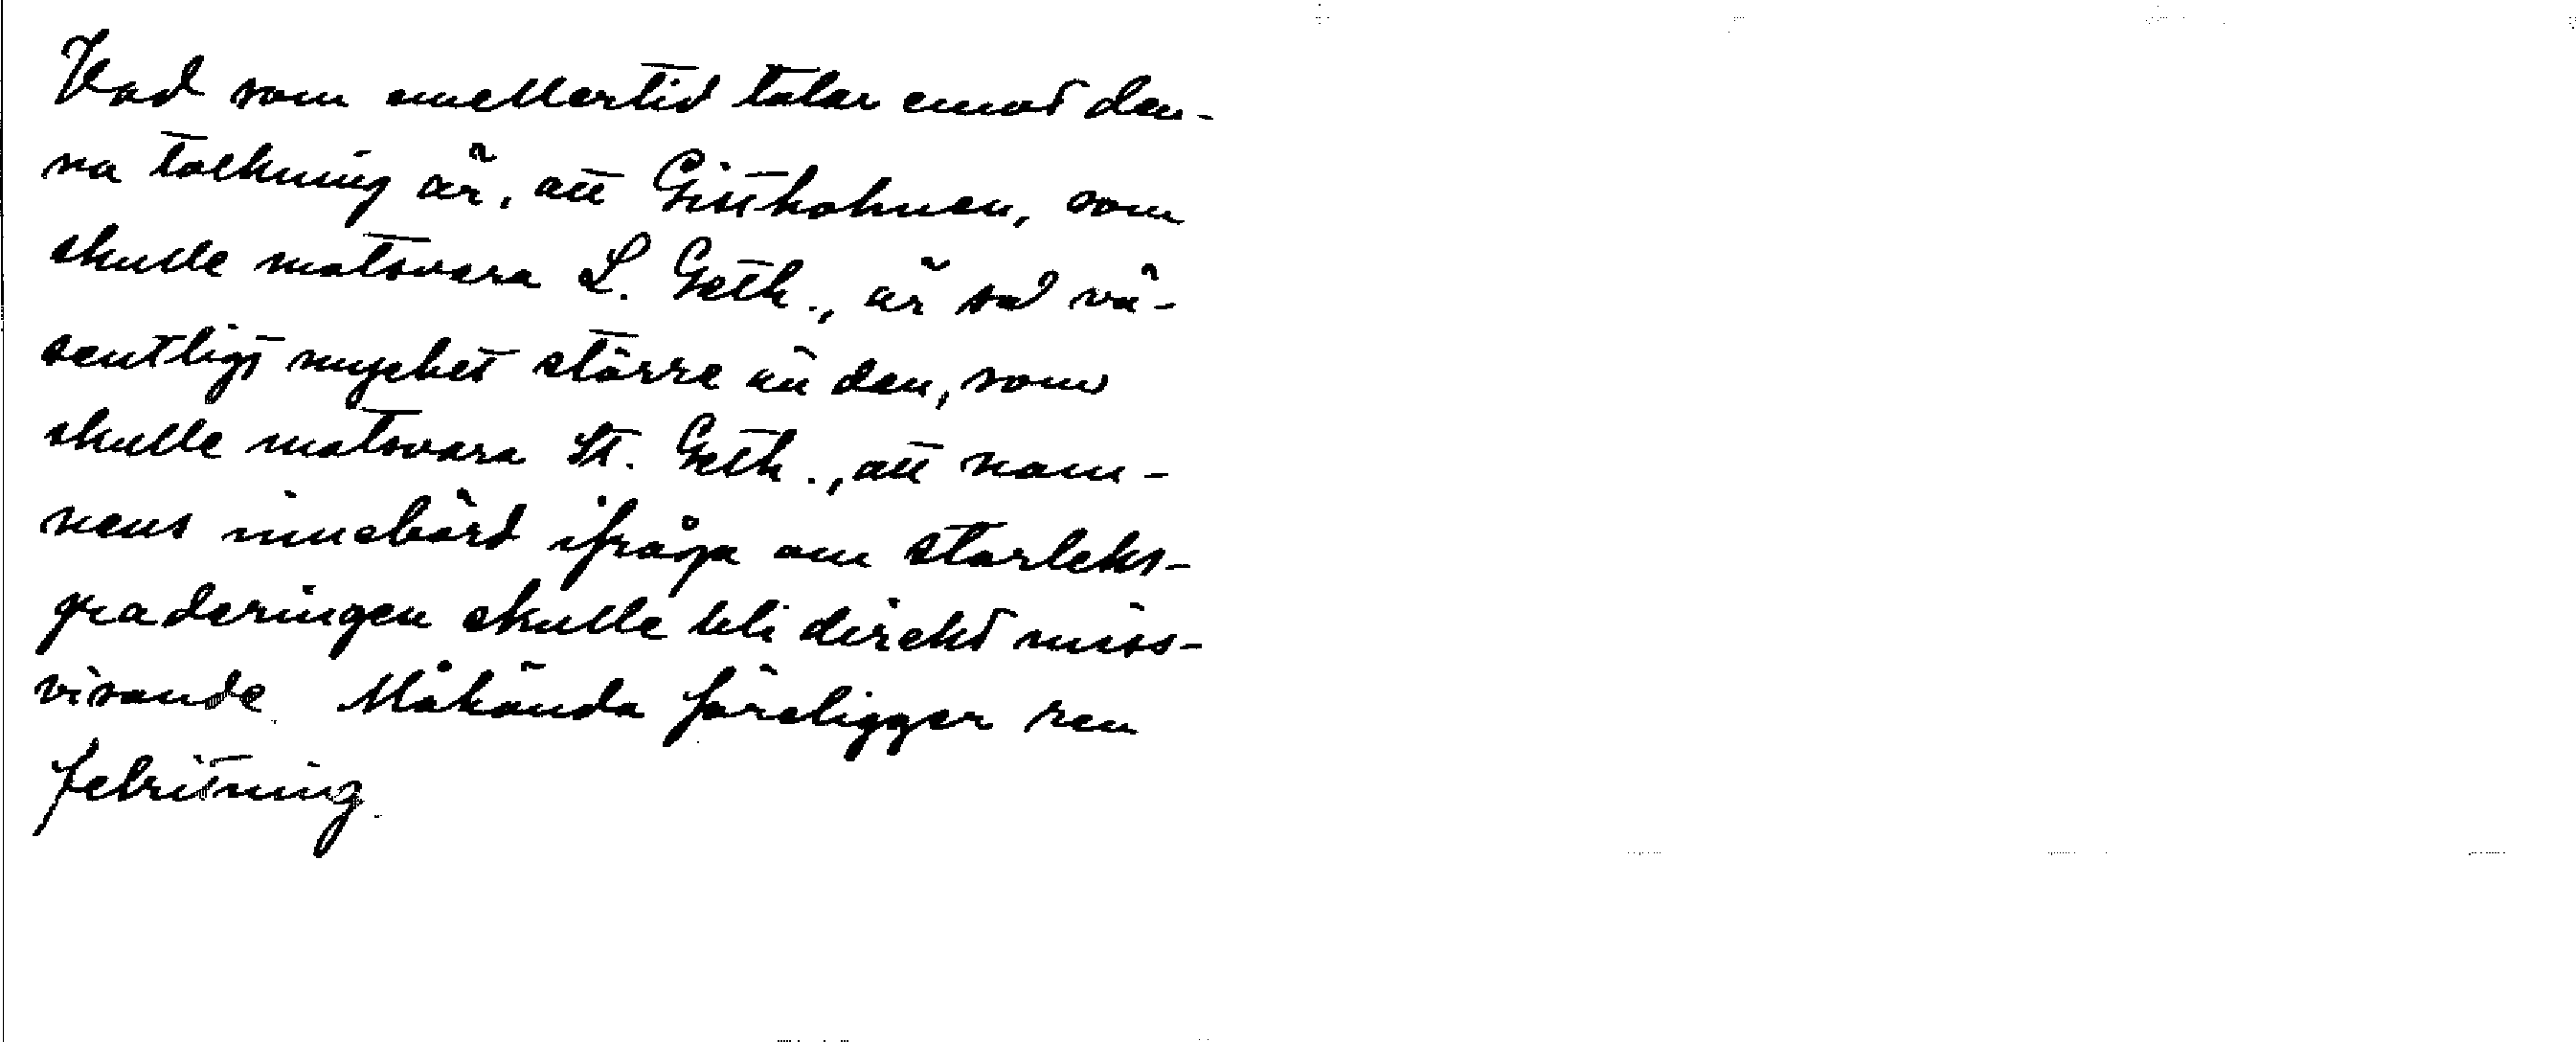 Vad som emellertid talar emot den-
na tolkning är, att Gistholmen, som
skulle motsvara L. Geth., är så vä-
sentligt mycket större än den, som
skulle motsvara St. Geth., att nam-
nens innebörd ifråga om storleks-
graderingen skulle bli direkt miss-
visande. Måhända föreligger ren
felritning.